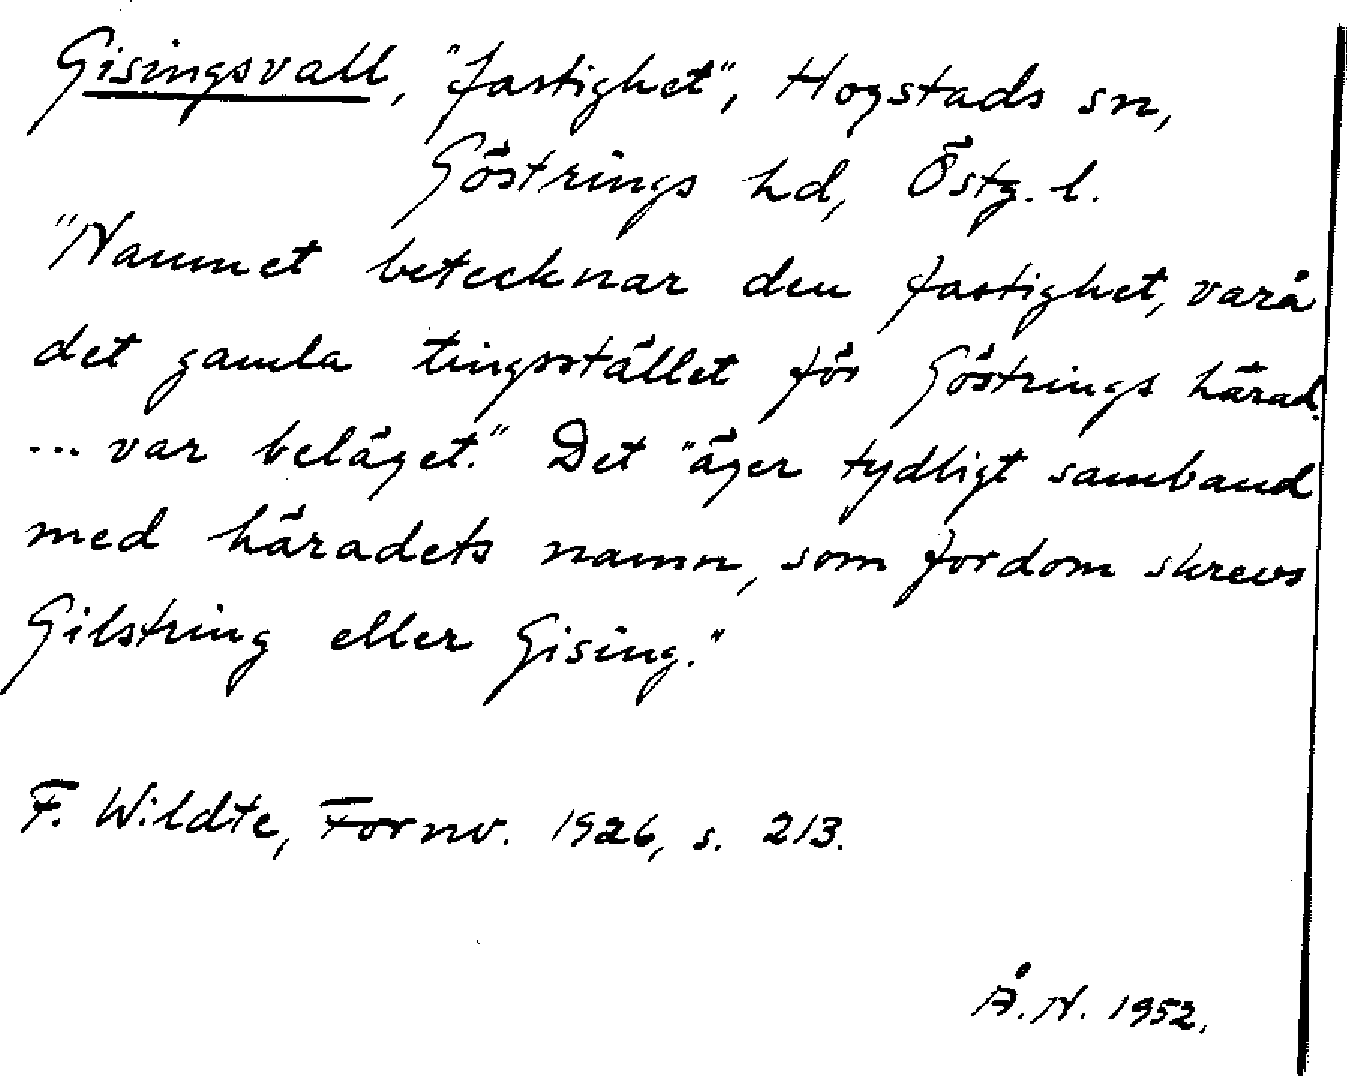 Gisingsvall, "fastighet", Hogstads sn,
Göstrings hd, Östg. l.
"Namnet betecknar den fastighet, varå
det gamla tingsstället för Göstrings härad
... var beläget." Det "äger tydligt samband
med häradets namn, som fordom skrevs
Gilstring eller Gising."
F. Wildte, Fornv. 1926, s. 213.
Å. N. 1952.